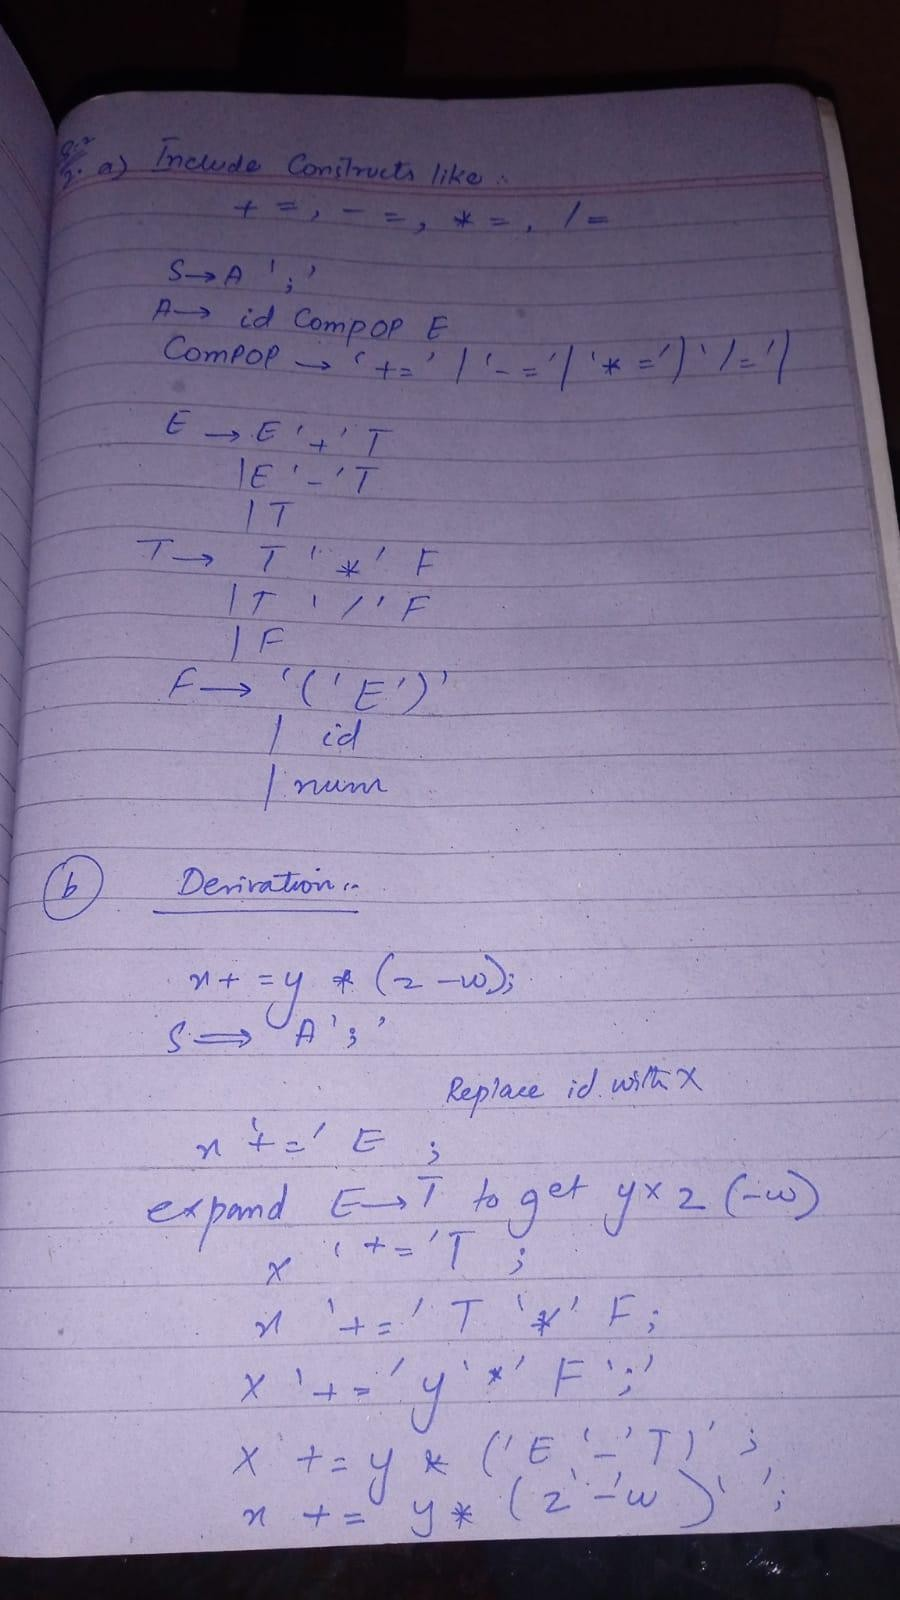 a) Include Constructs like :-
+ =, - =, * =, / =
S → A ';'
A → id CompOP E
CompOP → '+=' | '-=' | '*=' | '/=' |
E → E '+' T
| E '-' T
| T
T → T '*' F
| T '/' F
| F
F → '(' E ')'
| id
| num
(b) Derivation :-
x + = y * (z - w);
S ⇒ A ';'
Replace id with x
x '+=' E ;
expand E → T to get y x z (-w)
x '+=' T ;
x '+=' T '*' F ;
x '+=' y '*' F ';'
x += y * (' E '-' T )' ;
x += y * ( z '-' w )' ';